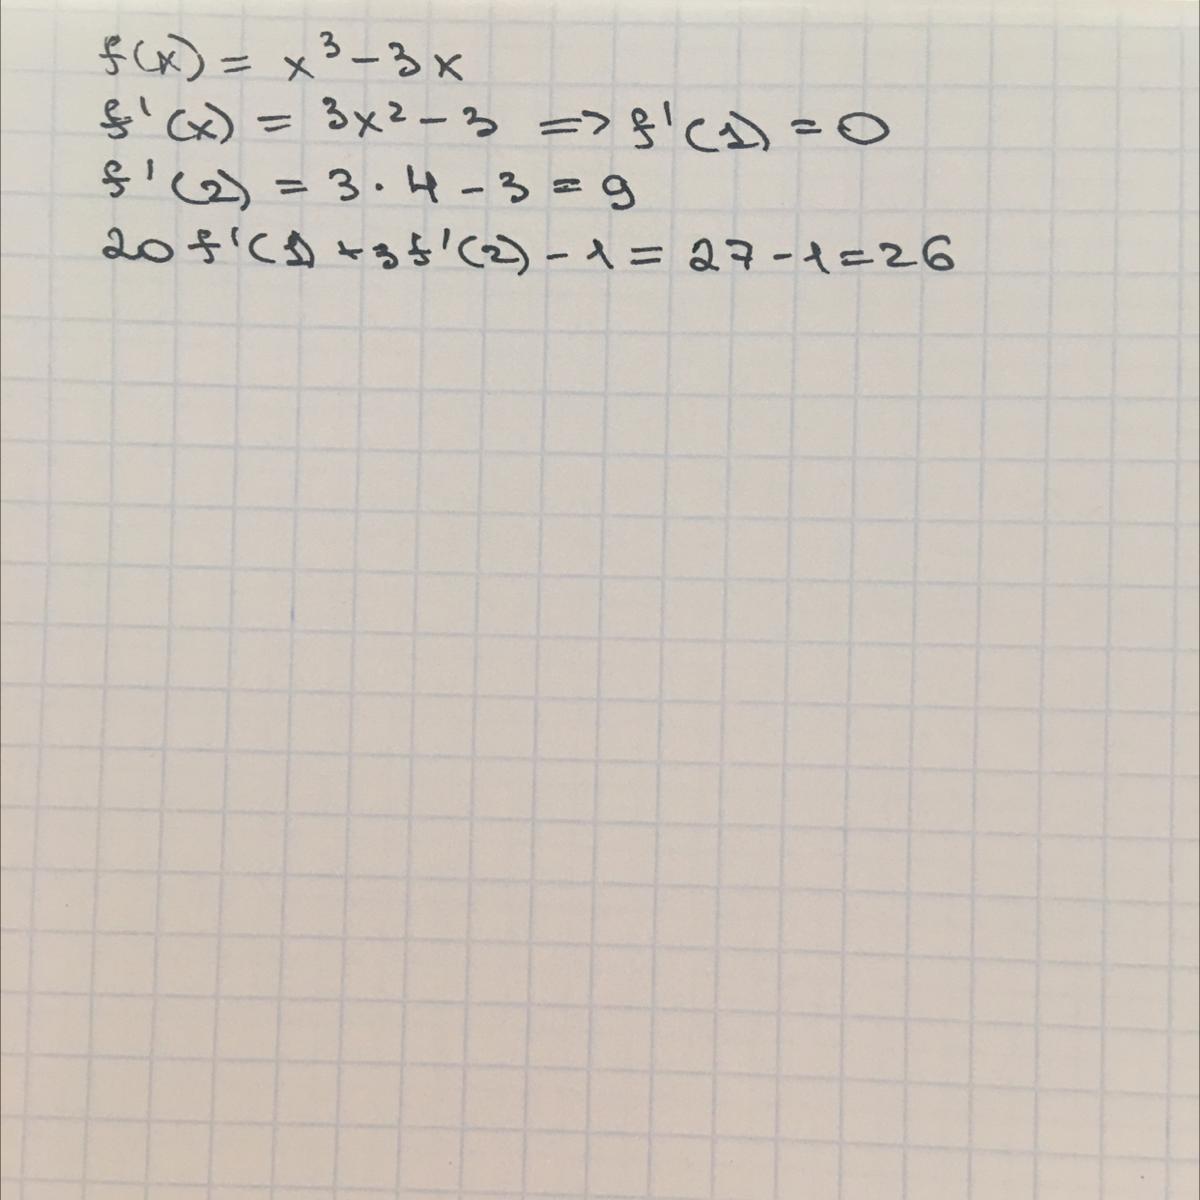 f(x) = x³ - 3x
f'(x) = 3x² - 3 => f'(1) = 0
f'(2) = 3 · 4 - 3 = 9
20 f'(1) + 3f'(2) - 1 = 27 - 1 = 26